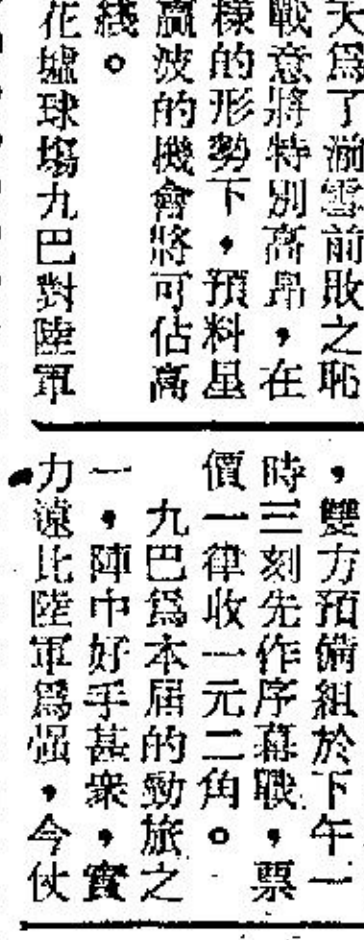 天爲了湔雪前敗之恥
戰意將特別高昂，在
樣的形勢下，預料星
贏波的機會將可佔高
綫。
花墟球場九巴對陸軍
，雙方預備組於下午一
時三刻先作序幕戰，票
價一律收一元二角。
九巴爲本屆的勁旅之
一，陣中好手甚衆，實
力遠比陸軍爲强，今仗